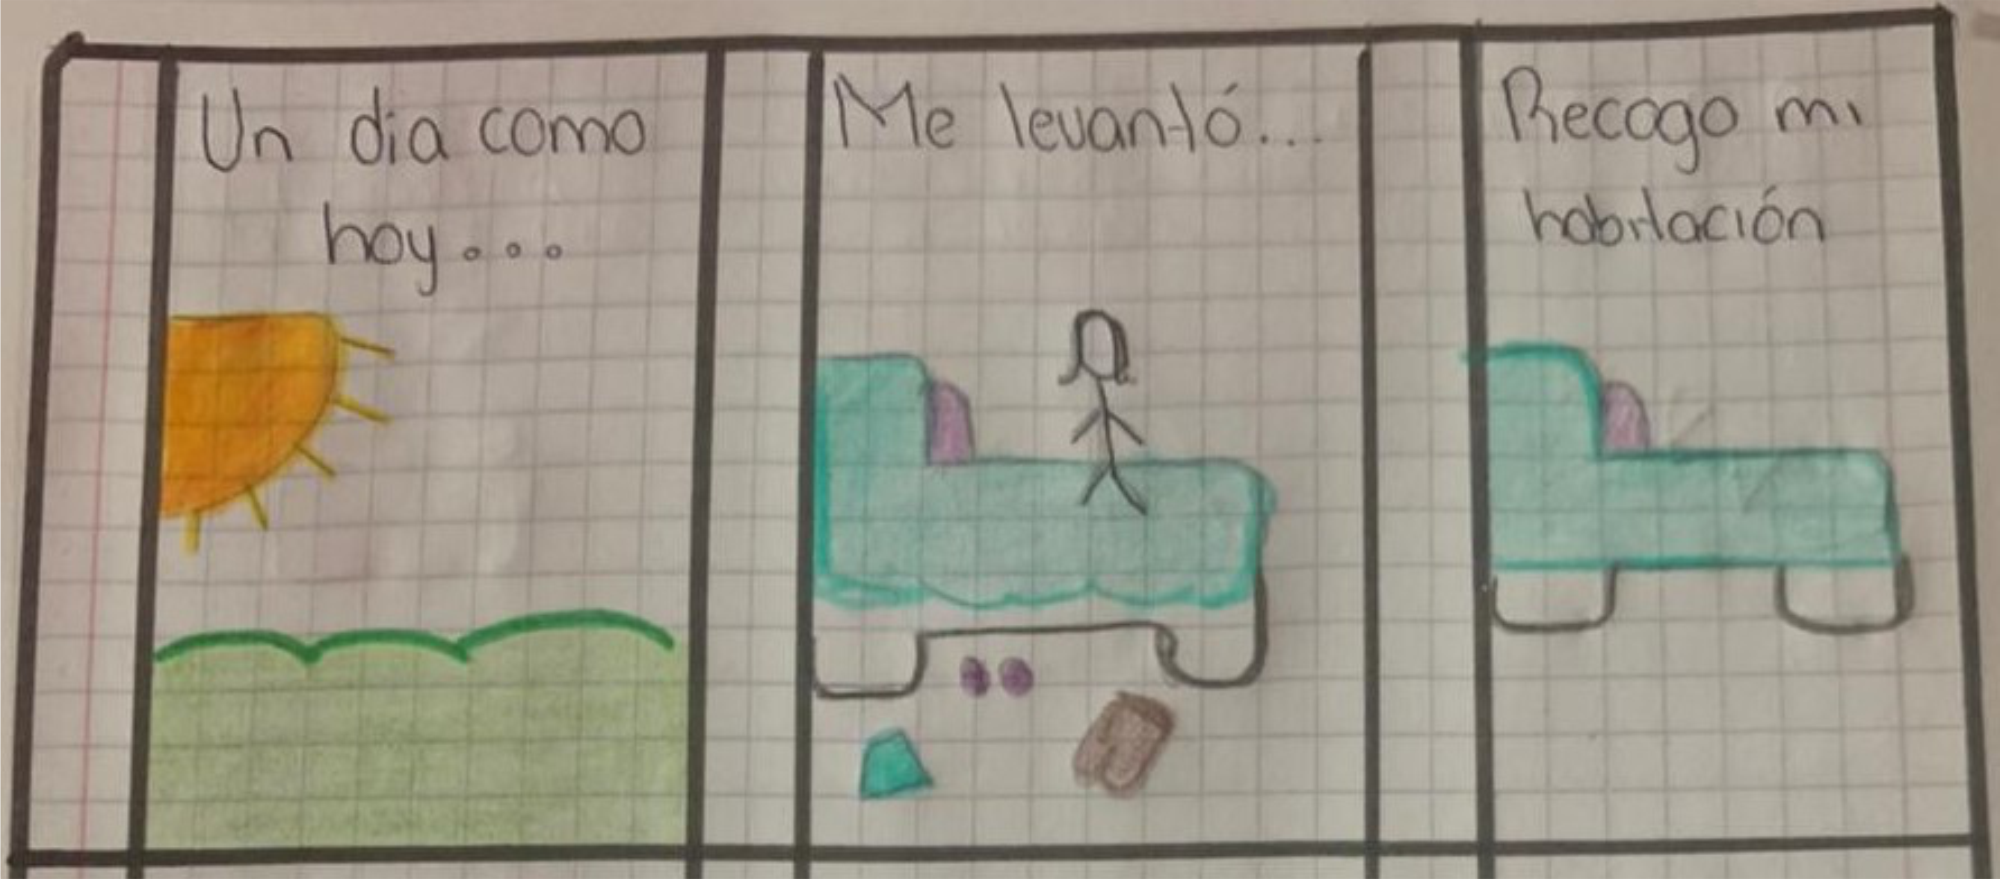 Un dia como
hoy...
Me levantó...
Recogo mi
habitación